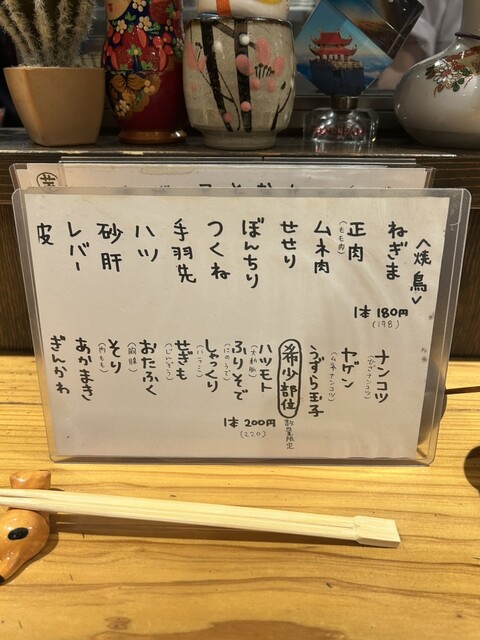 <焼鳥>
ねぎま
正肉
(もも肉)
ムネ肉
せせり
ぼんちり
つくね
手羽先
ハツ
砂肝
レバー
皮
1本 180円
(198)
ナンコツ
(ひざナンコツ)
ヤゲン
(ムネナンコツ)
うずら玉子
希少部位
数量限定
ハツモト
(大動脈)
ふりそで
(にのうで)
しゃっくり
(ハラミ)
せぎも
(じんぞう)
おたふく
(胸腺)
そり
(内もも)
あかまき
ぎんかわ
1本 200円
(220)